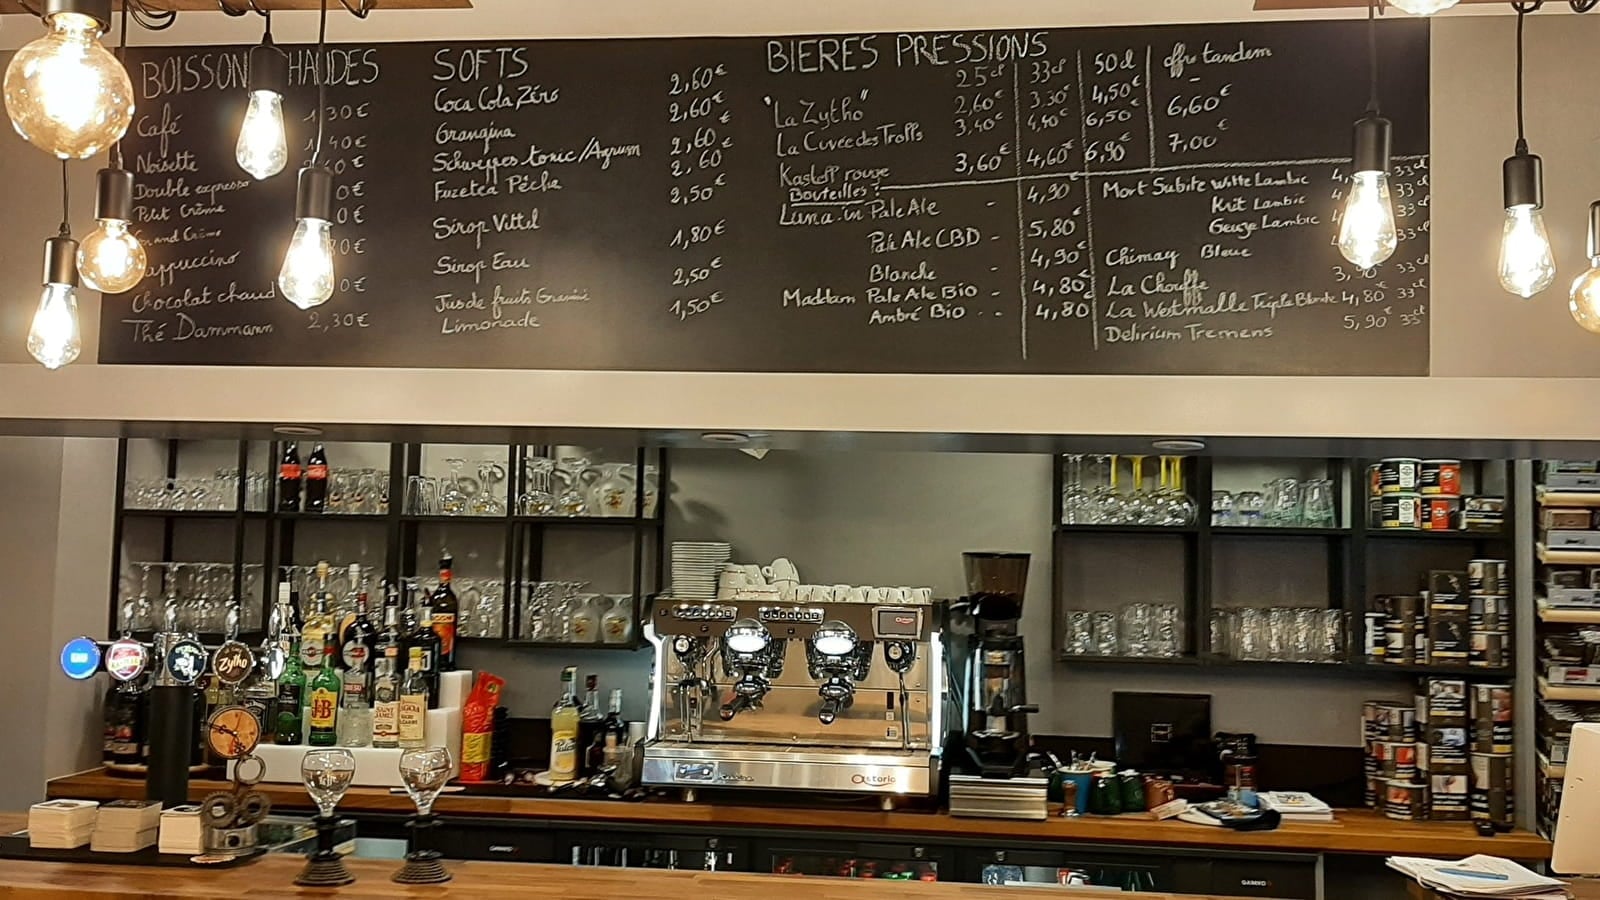 BOISSON CHAUDES
Café
Noisette
Double expresso
Petit Crème
Grand Crème
Cappuccino
Chocolat chaud
Thé Dammann 2,30€
SOFTS
Coca Cola Zéro 2,60€
Orangina 2,60€
Schweppes tonic/Agrum 2,60€
Fuzetea Pêche 2,60
Sirop Vittel 2,50€
Sirop Eau 1,80€
Jus de fruits 2,50€
Limonade 1,50€
BIERES PRESSIONS
25cl 33cl 50cl offre tandem
"La Zytho" 2,60€ 3,30€ 4,50€ 6,60€
La Cuvée des Trolls 3,40€ 4,40€ 6,50€ 7,00€
Kasteel rouge 3,60€ 4,60€ 6,90€
Bouteilles :
Pale Ale - 4,90€
Pale Ale CBD - 5,80€
Blanche 4,90€
Maddam Pale Ale Bio - 4,80€
Ambré Bio - - 4,80
Mort Subite Witte Lambic 33cl
Krit Lambic 33cl
Geuze Lambic 33cl
Chimay Bleue 33cl
La Chouffe 33cl
La Westmalle Triple Blonde 4,80€ 33cl
Delirium Tremens 5,90€ 33cl
Zytho
J&B
SAINT JAMES
astoria
GAMKO
GAMKO